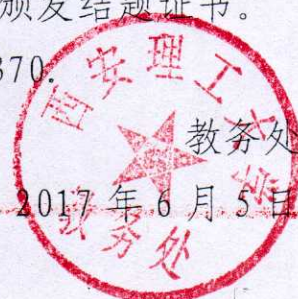 颁发结题证书。
370。
教务处
2017年6月5日
西安理工大学
教务处